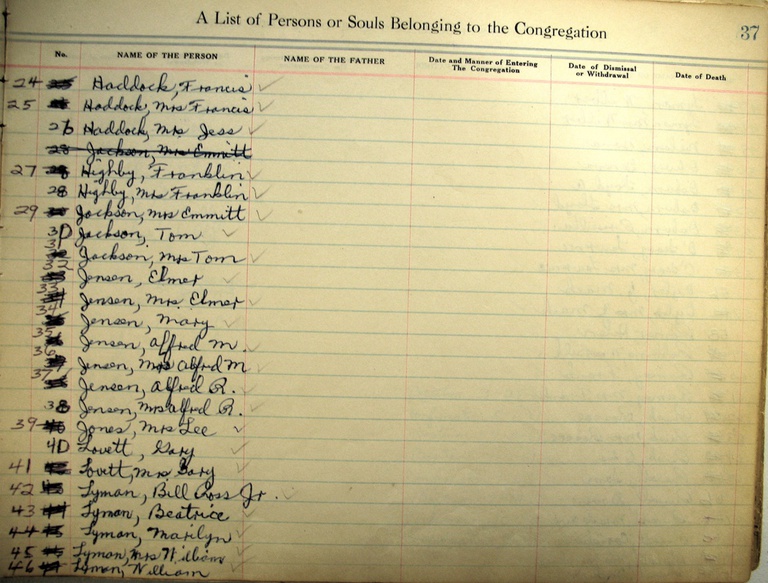 A List of Persons or Souls Belonging to the Congregation 37
No. NAME OF THE PERSON NAME OF THE FATHER Date and Manner of Entering The Congregation Date of Dismissal or Withdrawal Date of Death
24 Haddock, Francis ✓
25 Haddock, Mrs Francis ✓
26 Haddock, Mrs Jess ✓
28 Jackson, Mrs Emmitt
27 Highby, Franklin ✓
28 Highby, Mrs Franklin ✓
29 Jackson, Mrs Emmitt ✓
30 Jackson, Tom ✓
31 Jackson, Mrs Tom ✓
32 Jensen, Elmer ✓
33 Jensen, Mrs Elmer ✓
34 Jensen, Mary ✓
35 Jensen, Alfred M. ✓
36 Jensen, Mrs Alfred M ✓
37 Jensen, Alfred R. ✓
38 Jensen, Mrs Alfred R. ✓
39 Jones, Mrs Lee ✓
40 Lovett, Gary ✓
41 Lovett, Mrs Gary ✓
42 Lyman, Bill Ross Jr. ✓
43 Lyman, Beatrice ✓
44 Lyman, Marilyn ✓
45 Lyman, Mrs William
46 Lyman, William